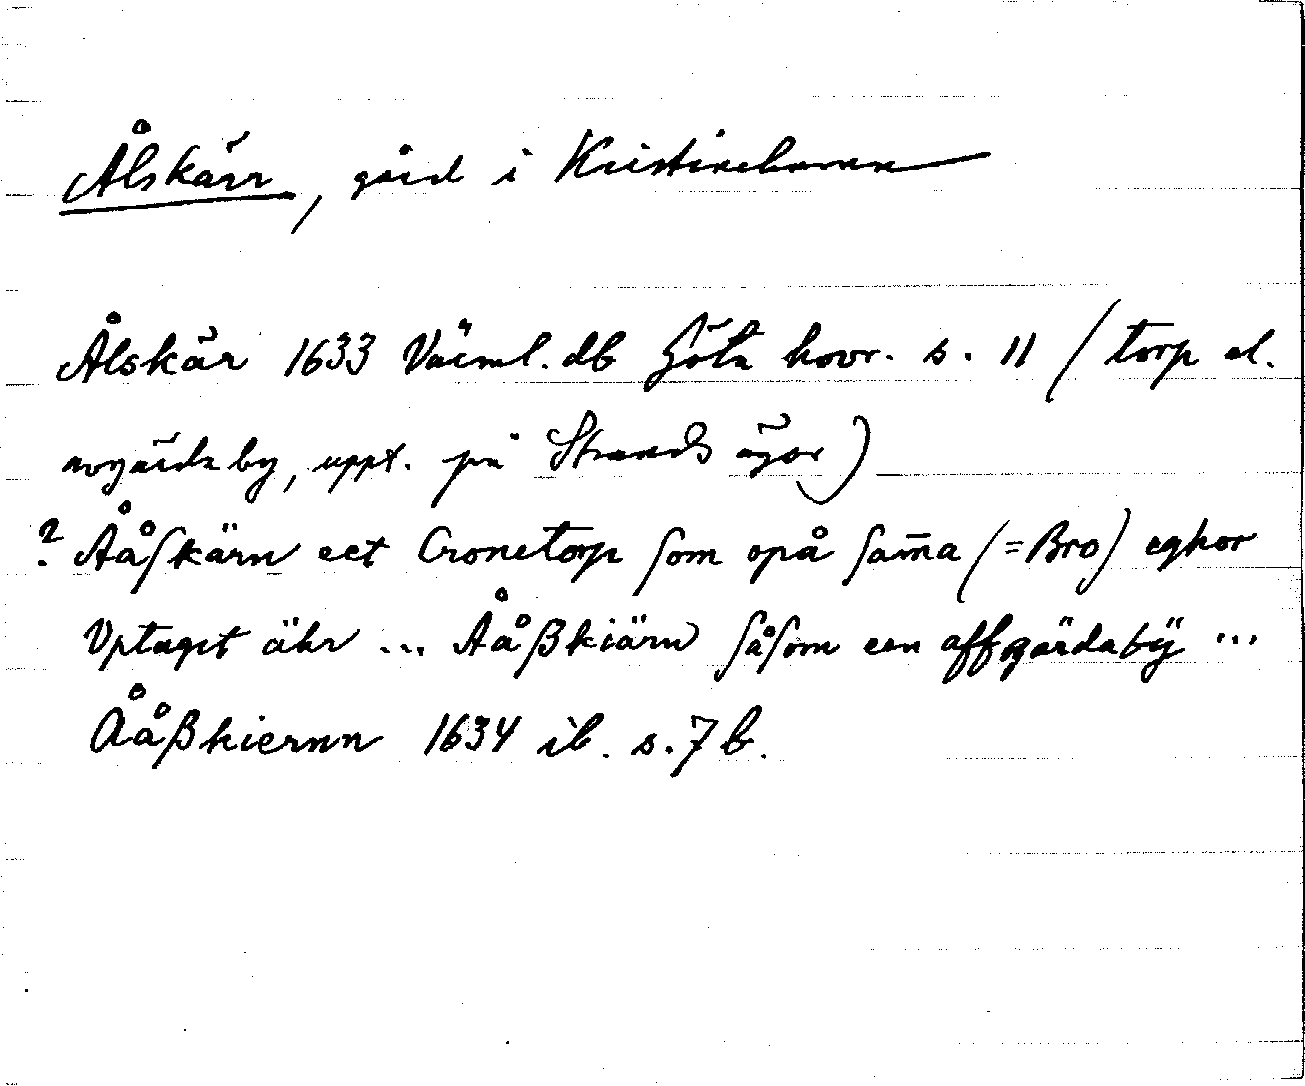 Ålskärr, gård i Kristinehamn
Ålskär 1633 Värml. db Göta hovr. s. 11 (torp el.
avgärda by, uppt. på Strands ägor)
? Åå∫kärn eet Cronetorp ∫om opå ∫am̅a (=Bro) eghor
Vptaget ähr ... Ååßkiärn ∫å∫om een affgärdabÿ ...
Ååßkiernn 1634 ib. s. 7 b.